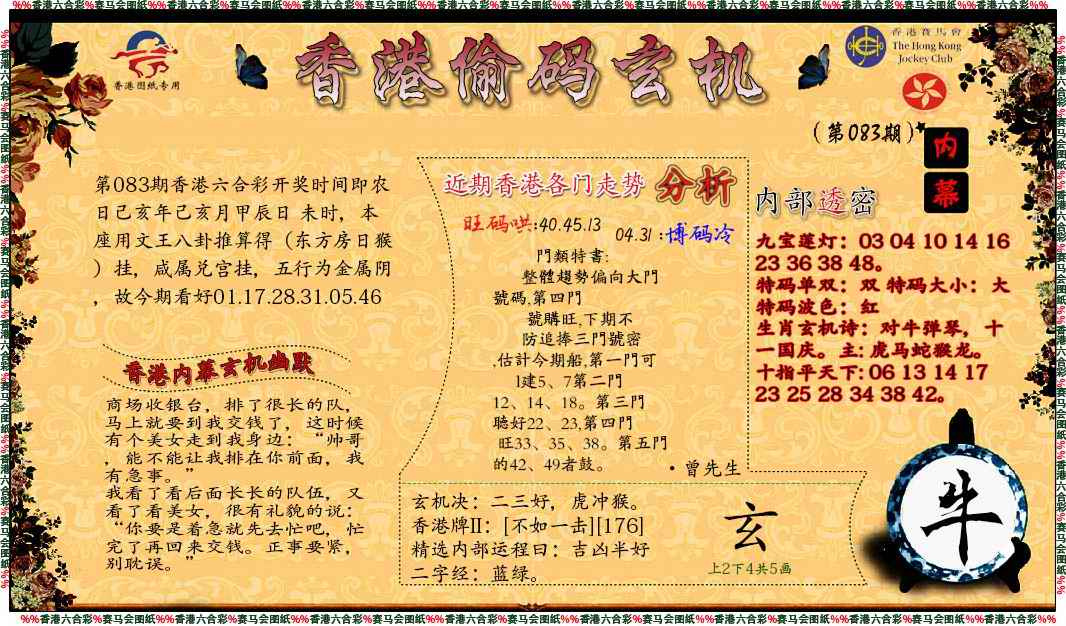 %%香港六合彩%赛马会图纸%%香港六合彩%赛马会图纸%%香港六合彩%赛马会图纸%%香港六合彩%赛马会图纸%%香港六合彩%赛马会图纸%%香港六合彩%赛马会图纸%%香港六合彩%%
香港图纸专用
香港偷码玄机
香港賽馬會
The Hong Kong
Jockey Club
(第083期)
内
幕
第083期香港六合彩开奖时间即农
日己亥年己亥月甲辰日 未时，本
座用文王八卦推算得（东方房日猴
）挂，咸属兑宫挂，五行为金属阴
，故今期看好01.17.28.31.05.46
香港内幕玄机幽默
商场收银台，排了很长的队，
马上就要到我交钱了，这时候
有个美女走到我身边：“帅哥
，能不能让我排在你前面，我
有急事。”
我看了看后面长长的队伍，又
看了看美女，很有礼貌的说：
“你要是着急就先去忙吧，忙
完了再回来交钱。正事要紧，
别耽误。”
近期香港各门走势 分析
旺码哄:40.45.13
04.31 :博码冷
門類特書:
整體趨勢偏向大門
號碼,第四門
號購旺,下期不
防追捧三門號密
,估計今期船,第一門可
l建5、7第二門
12、14、18。第三門
聽好22、23,第四門
旺33、35、38。第五門
的42、49者鼓。
•曾先生
玄机决：二三好，虎冲猴。
香港牌II：[不如一击][176]
精选内部运程曰：吉凶半好
二字经：蓝绿。
玄
上2下4共5画
内部透密
九宝莲灯：03 04 10 14 16
23 36 38 48。
特码单双：双 特码大小：大
特码波色：红
生肖玄机诗：对牛弹琴，十
一国庆。主: 虎马蛇猴龙。
十指平天下: 06 13 14 17
23 25 28 34 38 42。
牛
%%香港六合彩%赛马会图纸%%香港六合彩%赛马会图纸%%香港六合彩%赛马会图纸%%香港六合彩%赛马会图纸%%香港六合彩%赛马会图纸%%香港六合彩%赛马会图纸%%香港六合彩%赛马会图纸%%